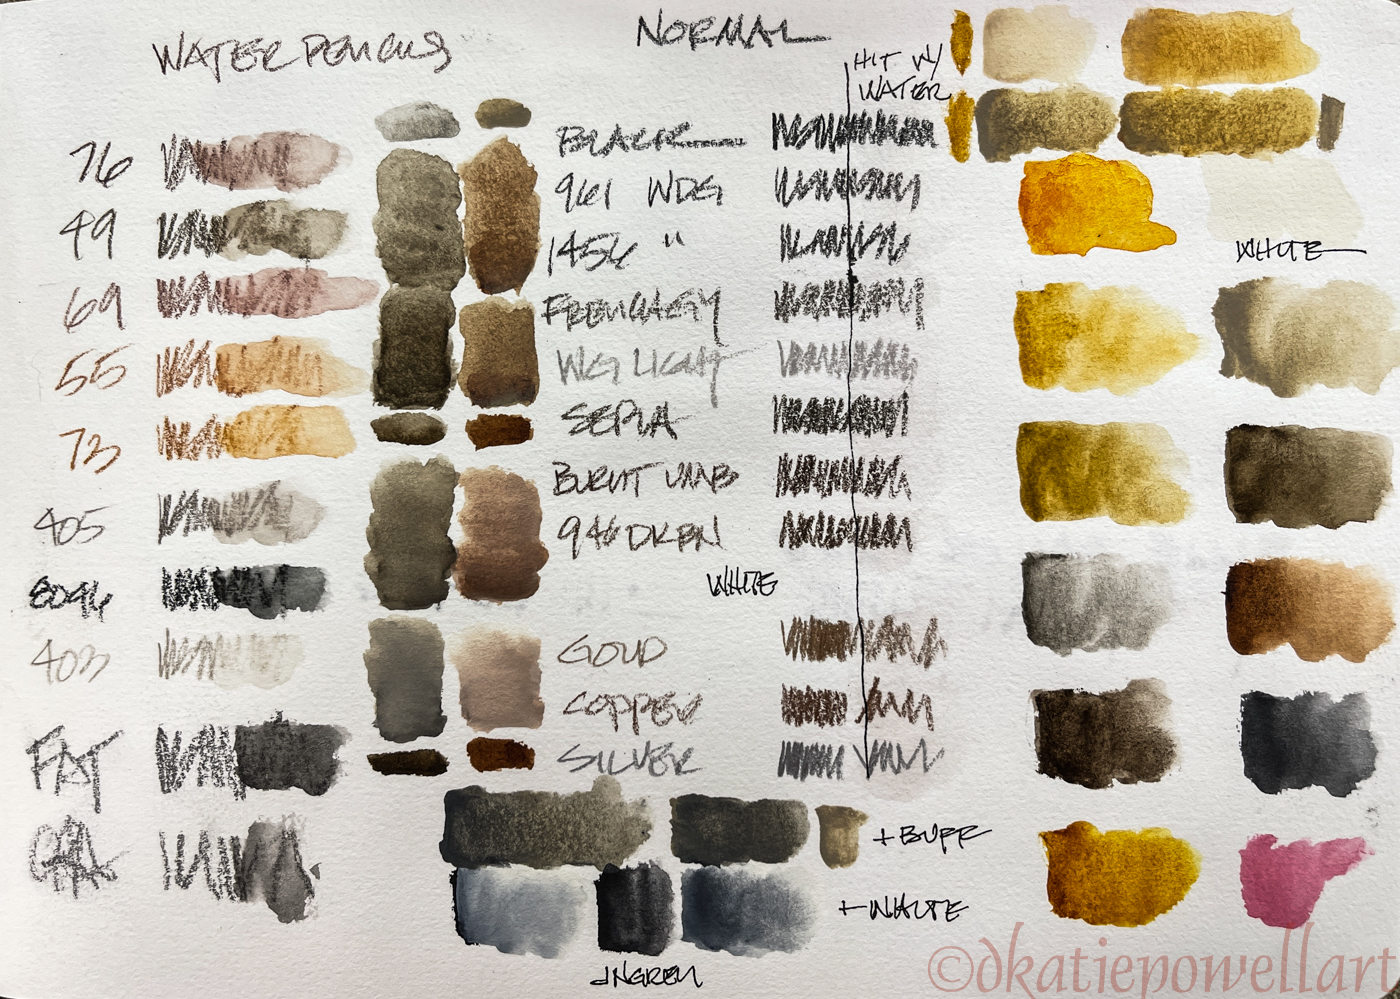 WATER PENCILS
76
49
69
55
73
405
8046
403
FAT
CHAL
NORMAL
HIT W/
WATER
BLACK
961 WDG
1456 "
FRENCH GY
WG LIGHT
SEPIA
BURNT UMB
946 DKBN
WHITE
GOLD
COPPER
SILVER
WHITE
+ BUFF
+ WHITE
©dkatiepowellart